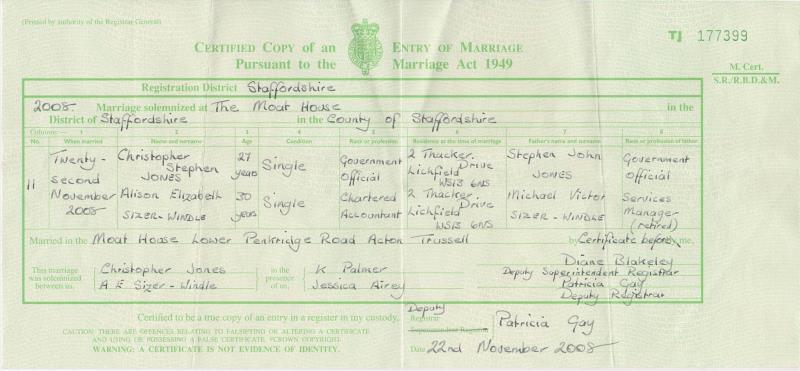 (Printed by authority of the Registrar General)
CERTIFIED COPY OF AN ENTRY OF MARRIAGE
Pursuant to the Marriage Act 1949
TJ 177399
M. Cert.
S.R./R.B.D.&M.
Registration District Staffordshire
2008. Marriage solemnized at The Moat House in the
District of Staffordshire in the County of Staffordshire
Columns:— 1 2 3 4 5 6 7 8
No. When married Name and surname Age Condition Rank or profession Residence at the time of marriage Father's name and surname Rank or profession of father
11 Twenty-second November 2008 Christopher Stephen JONES 27 years Single Government Official 2 Thacker Drive Lichfield WS13 6NS Stephen John JONES Government Official
Alison Elizabeth SIZER-WINDLE 30 years Single Chartered Accountant 2 Thacker Drive Lichfield WS13 6NS Michael Victor SIZER-WINDLE Services Manager (retired)
Married in the Moat House Lower Penkridge Road Acton Trussell by Certificate before me,
This marriage was solemnized between us, Christopher Jones A E Sizer-Windle in the presence of us, K Palmer Jessica Airey
Diane Blakeley
Deputy Superintendent Registrar
Patricia Gay
Deputy Registrar
Certified to be a true copy of an entry in a register in my custody.
Deputy
Registrar
Superintendent Registrar
Patricia Gay
CAUTION: THERE ARE OFFENCES RELATING TO FALSIFYING OR ALTERING A CERTIFICATE
AND USING OR POSSESSING A FALSE CERTIFICATE. ©CROWN COPYRIGHT.
WARNING: A CERTIFICATE IS NOT EVIDENCE OF IDENTITY.
Date 22nd November 2008